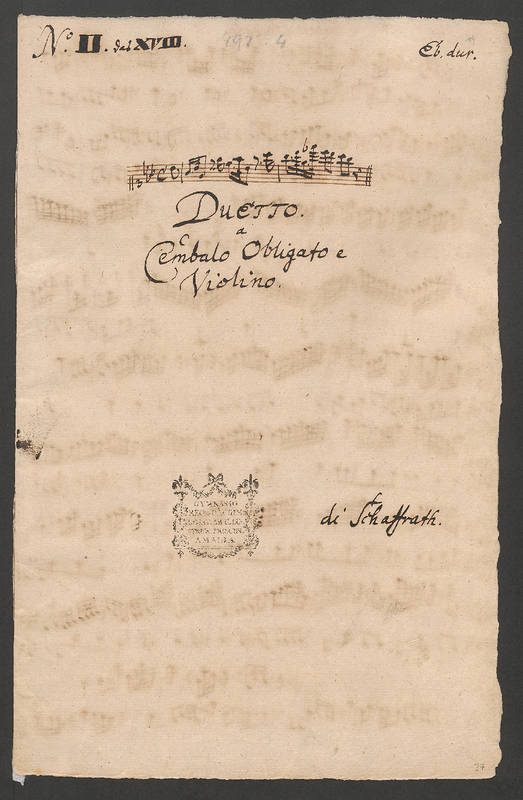 N.º II. dal XVIII.
492 . 4
Eb. dur.
Duetto.
a
Cembalo Obligato e
Violino.
GYMNASIO
AMALIA
di Schaffrath.